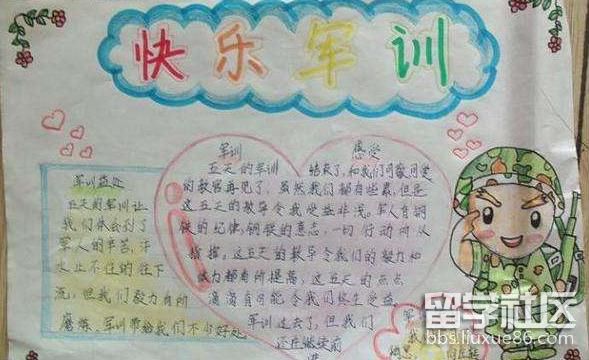 快乐军训
军训益处
五天的军训让
我们体会到了
军人的辛苦，汗
水止不住的往下
流，但我们毅力有所
磨炼，军训带给我们不少好处
军训 感受
五天的军训 结束了，和我们可敬可爱
的教官再见了，虽然我们都有些累，但是
这五天的教导令我受益非浅。军人有钢
铁的纪律，钢铁的意志，一切行动听从
指挥，这五天的教导令我们的毅力和
体力都有所提高，这五天的点点
滴滴有可能令我们终生受益。
军训过去了，但我们
还在继续前
进
军
我
挺
留学社区
bbs.liuxue86.com